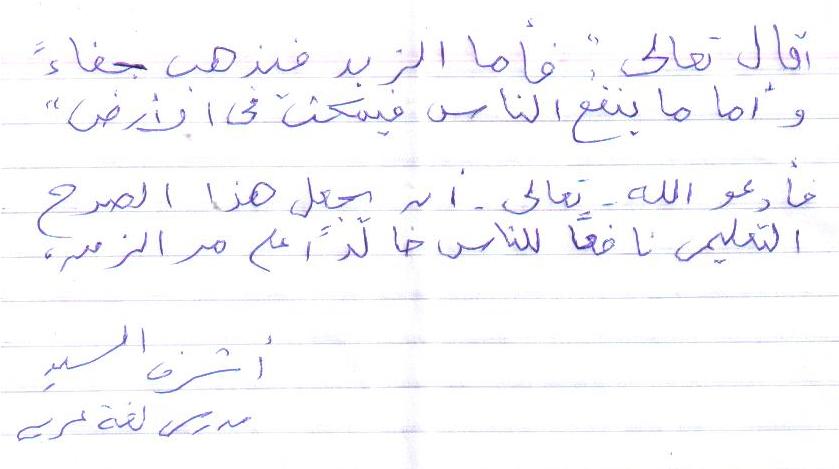 قال تعالى: "فأما الزبد فيذهب جفاءً
وأما ما ينفع الناس فيمكث فى الأرض"
فأدعو الله - تعالى - أن يجعل هذا الصرح
التعليمى نافعًا للناس خالدًا على مر الزمن،
أشرف السيد
مدرس لغة عربية